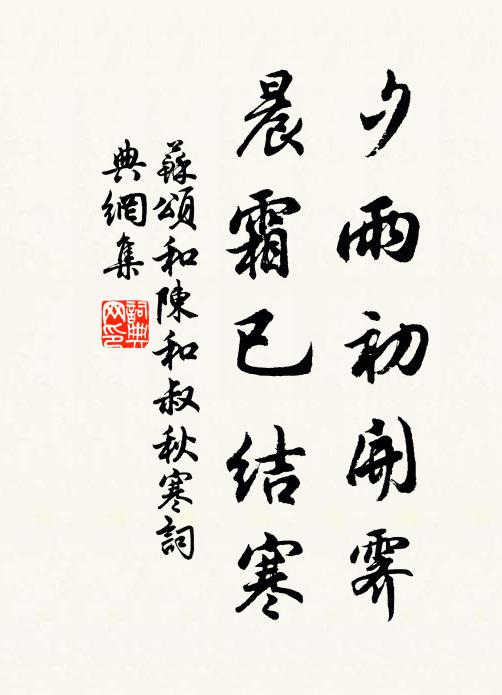 夕雨初開霽
晨霜已結寒
蘇頌和陳和叔秋寒詞
典網集
詞典
网印